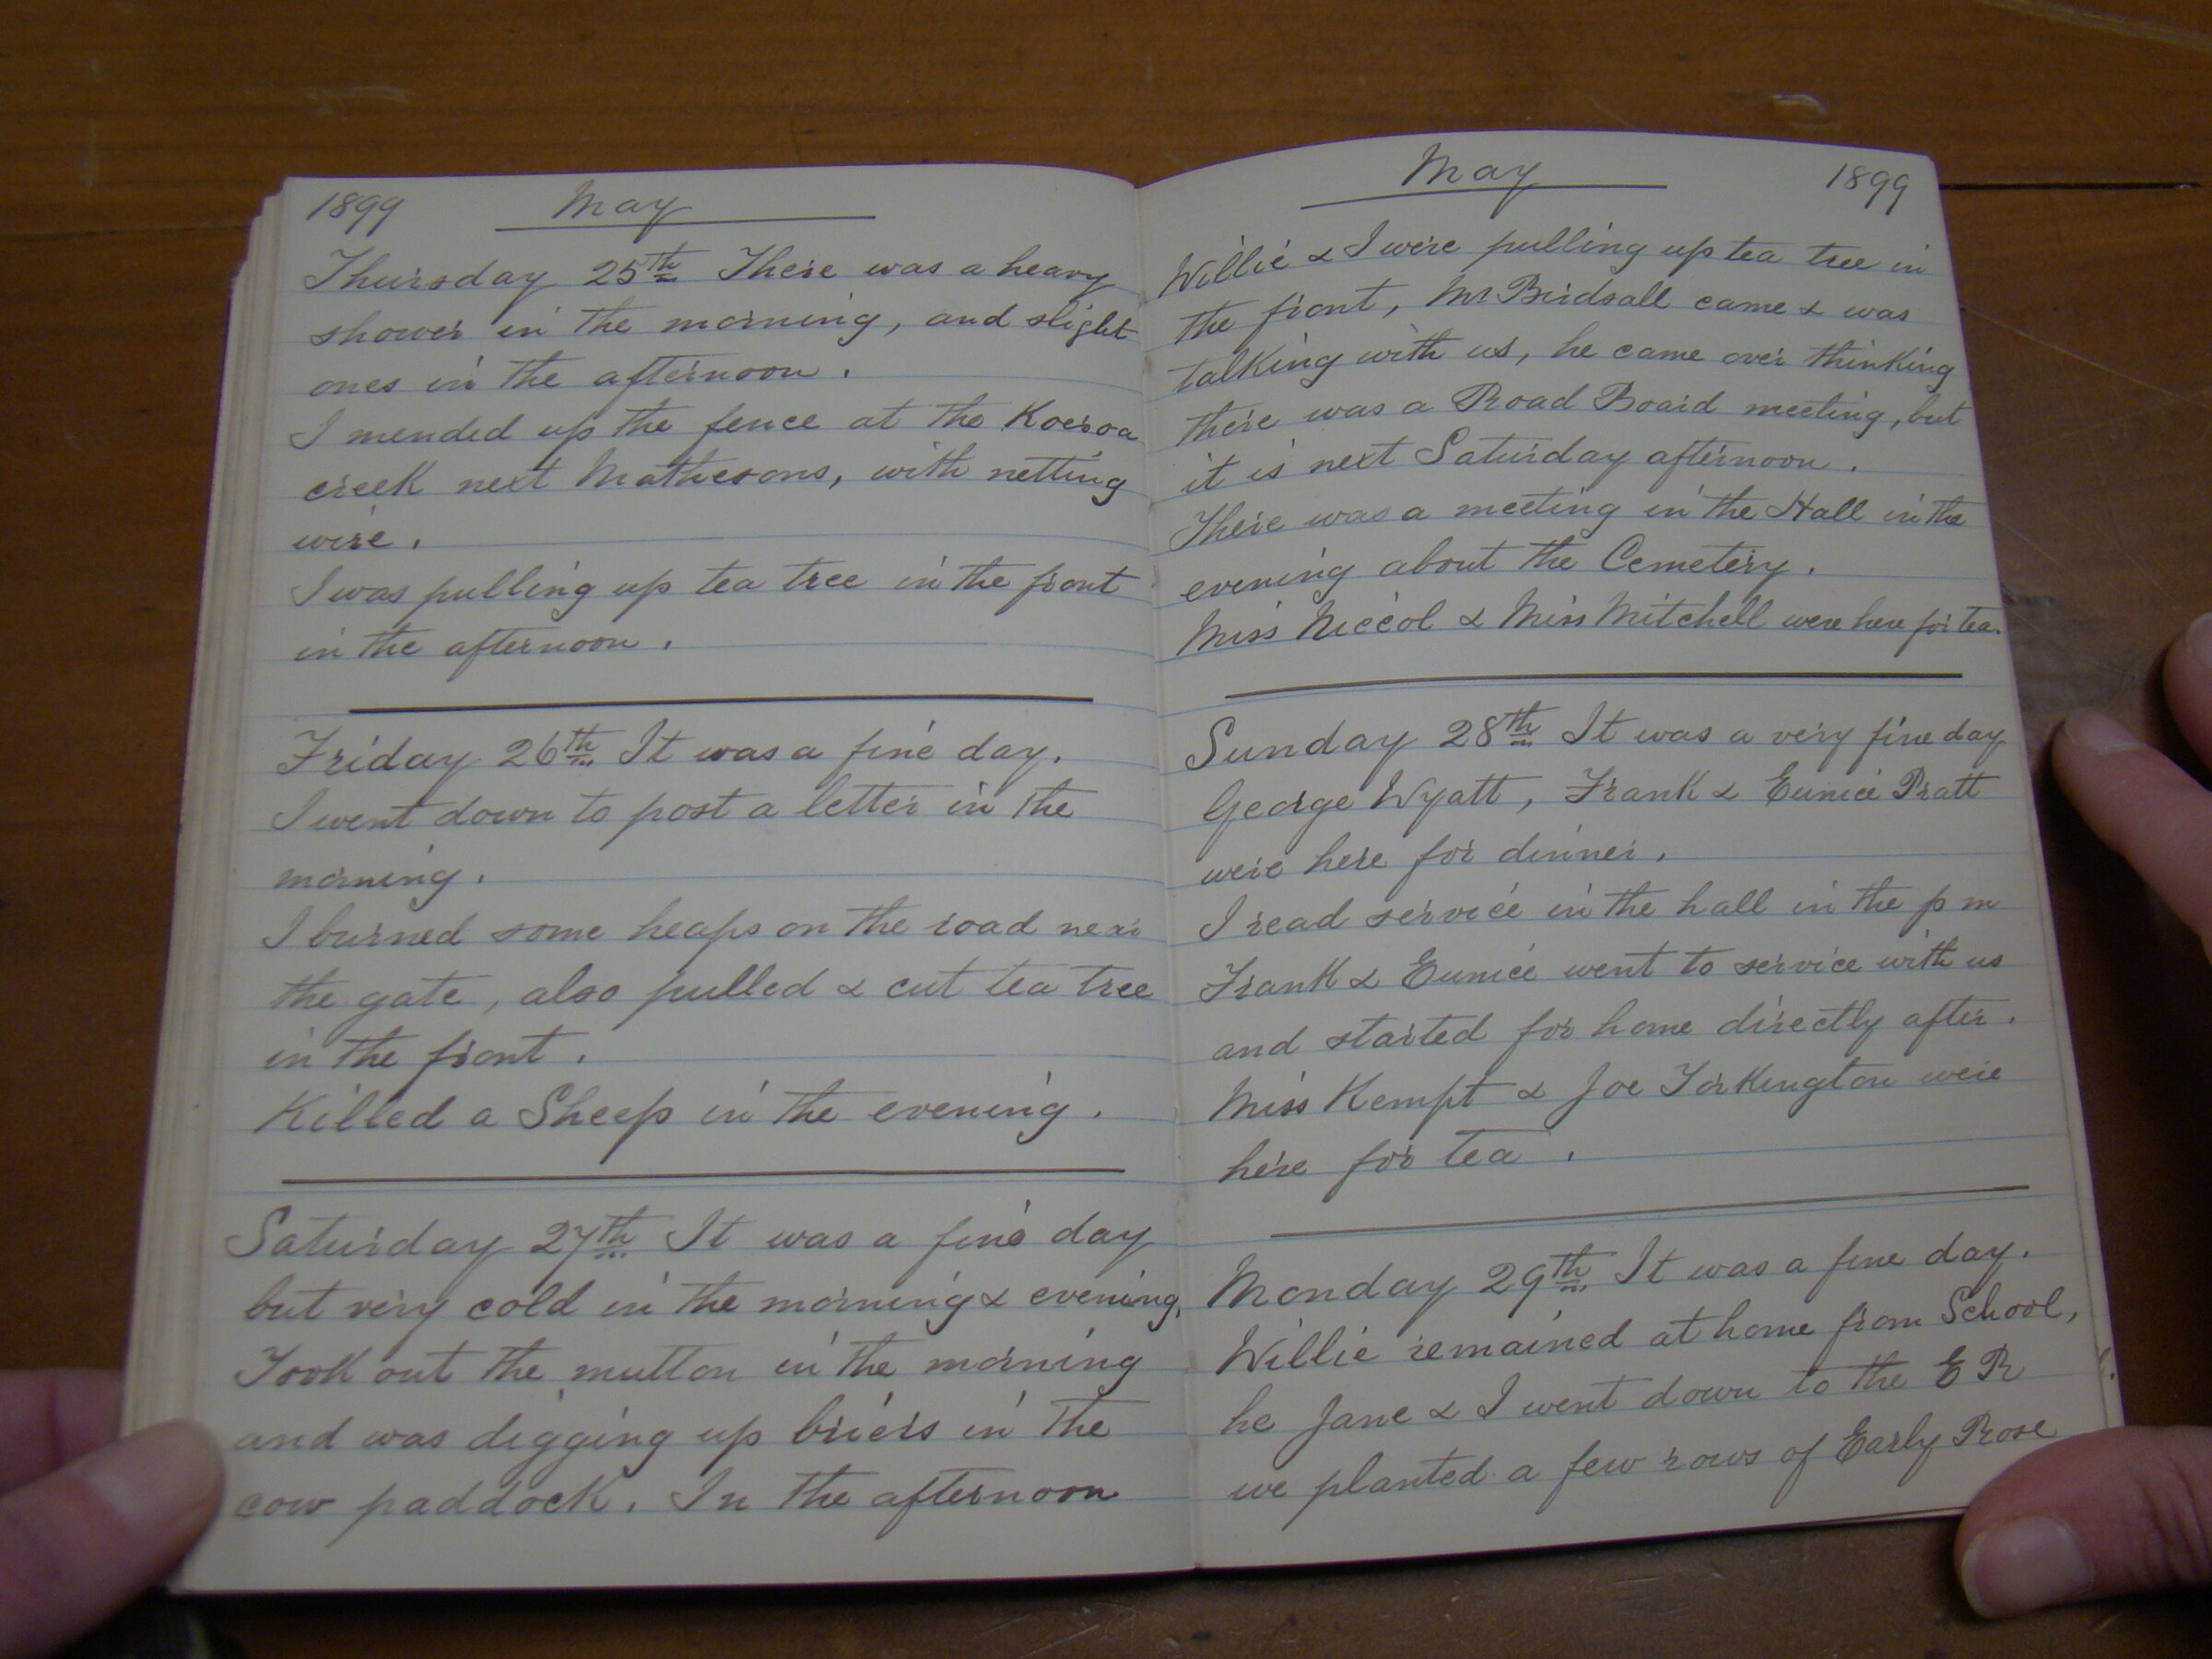 1899 May
Thursday 25th There was a heavy
shower in the morning, and slight
ones in the afternoon.
I mended up the fence at the Koeroa
creek next Mathesons, with netting
wire.
I was pulling up tea tree in the front
in the afternoon.
Friday 26th It was a fine day.
I went down to post a letter in the
morning.
I burned some heaps on the road near
the gate, also pulled & cut tea tree
in the front.
Killed a Sheep in the evening.
Saturday 27th It was a fine day
but very cold in the morning & evening,
Took out the mutton in the morning
and was digging up briers in the
cow paddock. In the afternoon
May 1899
Willie & I were pulling up tea tree in
the front, Mr Birdsall came & was
talking with us, he came over thinking
there was a Road Board meeting, but
it is next Saturday afternoon.
There was a meeting in the Hall in the
evening about the Cemetery.
Miss Niccol & Miss Mitchell were here for tea.
Sunday 28th It was a very fine day
George Wyatt, Frank & Eunice Pratt
were here for dinner.
I read service in the hall in the p m
Frank & Eunice went to service with us
and started for home directly after.
Miss Kempt & Joe Torkington were
here for tea.
Monday 29th It was a fine day.
Willie remained at home from School,
he Jane & I went down to the E R
we planted a few rows of Early Rose